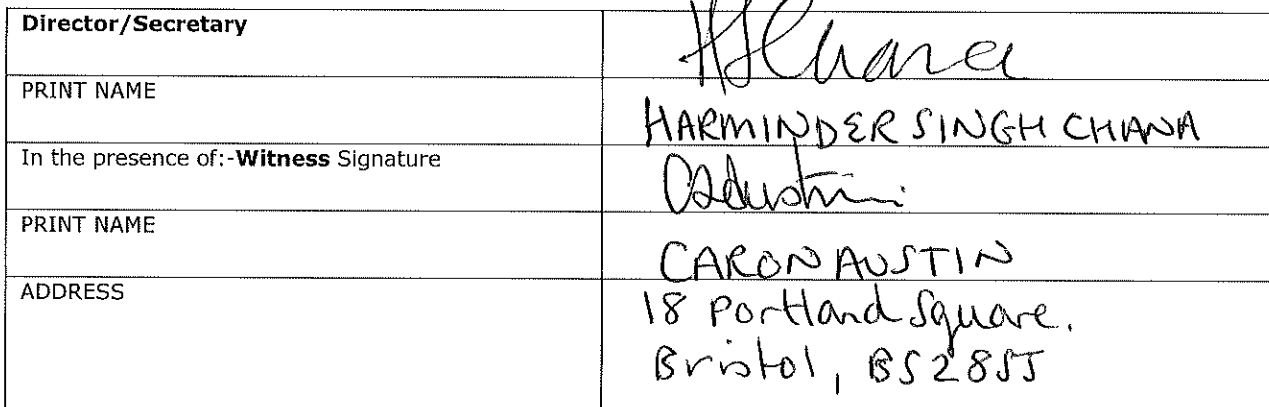 Director/Secretary
HSChana
PRINT NAME
HARMINDER SINGH CHANA
In the presence of:-Witness Signature
PRINT NAME
CARON AUSTIN
ADDRESS
18 Portland Square.
Bristol, BS2 8SJ